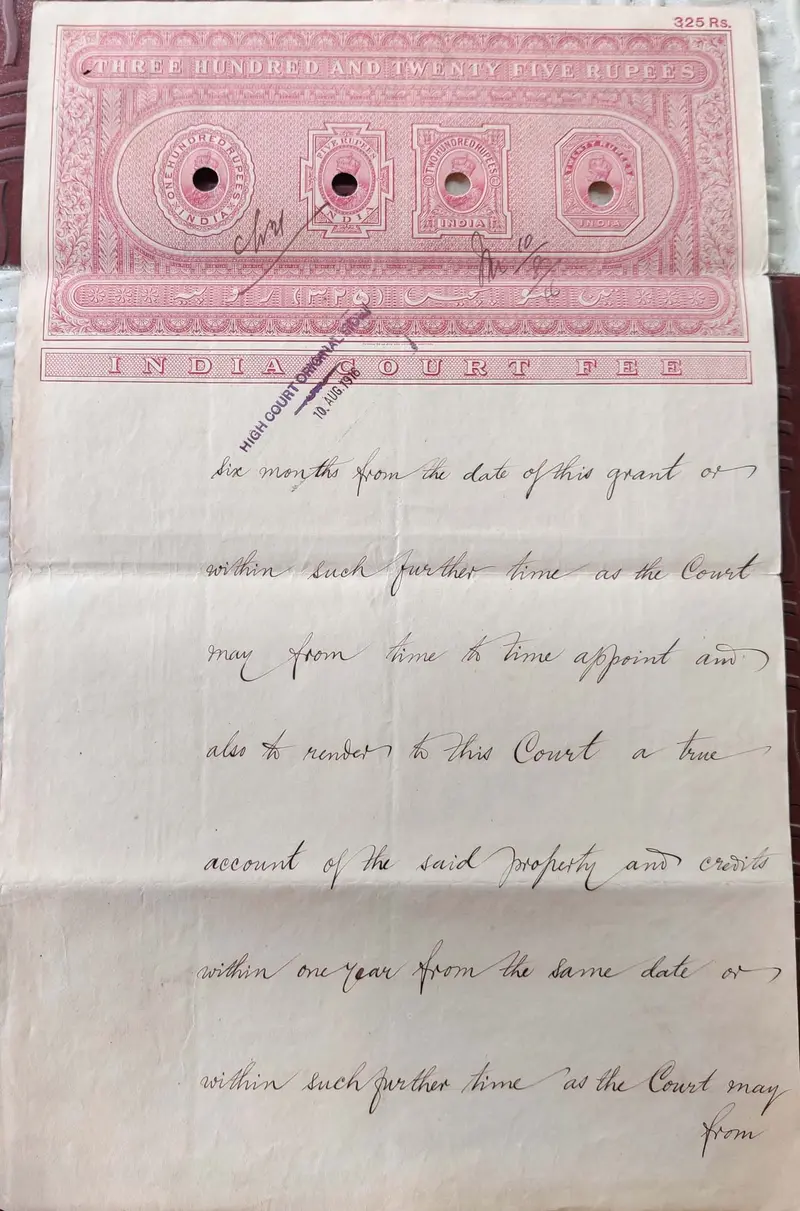 325 Rs.
THREE HUNDRED AND TWENTY FIVE RUPEES
ONE HUNDRED RUPEES
INDIA
FIVE RUPEES
INDIA
TWO HUNDRED RUPEES
INDIA
TWENTY RUPEES
INDIA
10/8/16
(۳۲۵) روپیہ
INDIA COURT FEE
HIGH COURT ORIGINAL SIDE
10. AUG. 1916
six months from the date of this grant or
within such further time as the Court
may from time to time appoint and
also to render to this Court a true
account of the said property and credits
within one year from the same date or
within such further time as the Court may
from